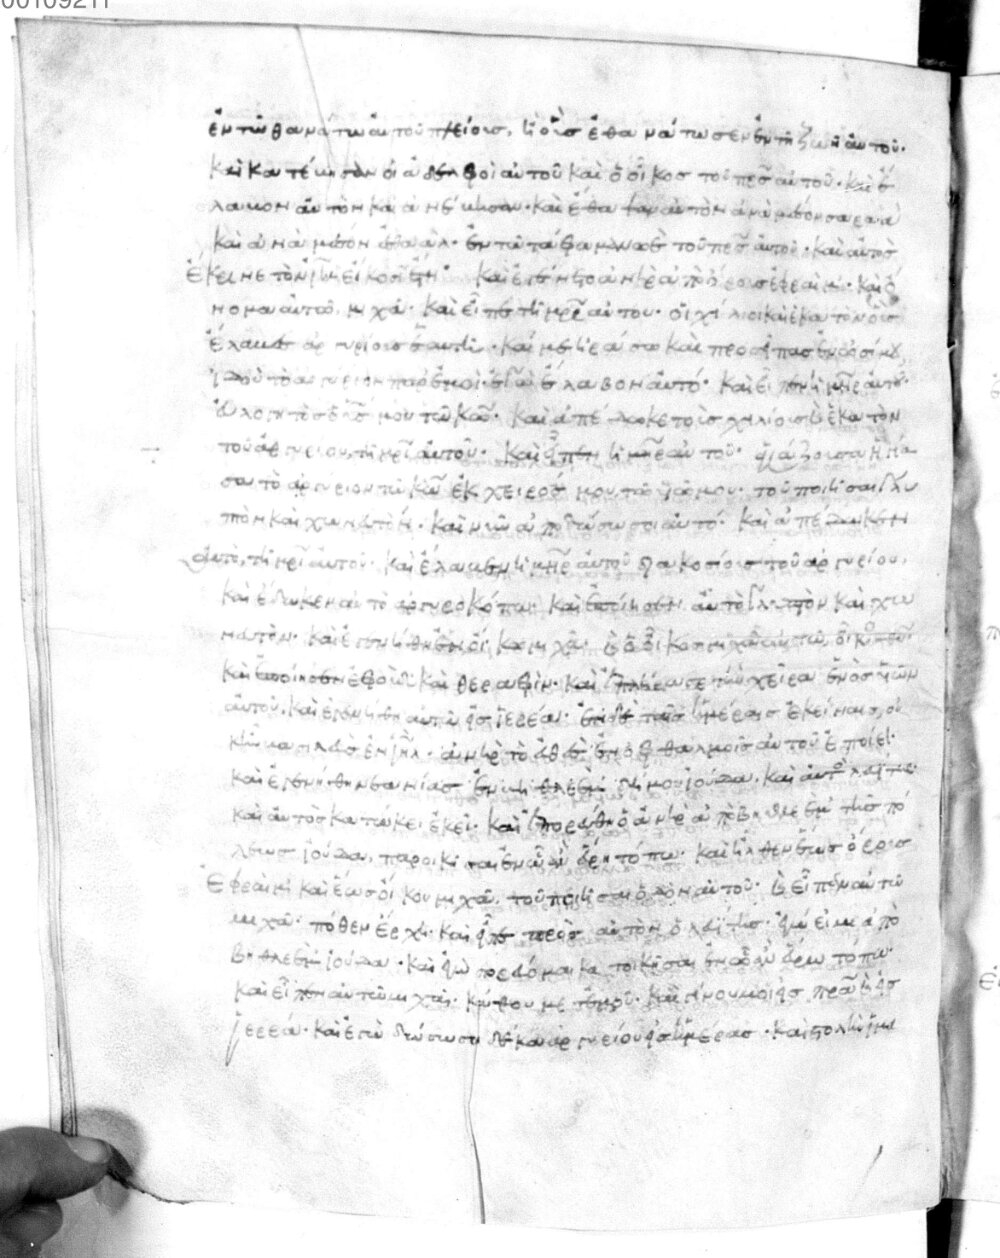 00109211
ἐν τῶ θανάτω αὐτοῦ πλείους, ἢ οὓς ἐθανάτωσεν ἐν τῆ ζωῆ αὐτοῦ·
καὶ κατέβησαν οἱ ἀδελφοὶ αὐτοῦ καὶ ὁ οἶκος τοῦ πρσ αὐτοῦ· καὶ ἔ
λαβον αὐτὸν καὶ ἀνέβησαν· καὶ ἔθαψαν αὐτὸν ἀνὰ μέσον σαραὰ
καὶ ἀνὰ μέσον ἐσθαὸλ· ἐν τῶ τάφω μανωὲ τοῦ πρσ αὐτοῦ· καὶ αὐτὸς
ἔκρινε τὸν ιηλ εἴκοσι ἔτη· καὶ ἐγένετο ἀνὴρ ἀπὸ ὄρους ἐφραΐμ· καὶ ὄ
νομα αὐτοῦ, μιχά· καὶ εἶπε τῆ μρι αὐτοῦ· οἱ χίλιοι καὶ ἑκατὸν οὓς
ἔλαβες ἀργυρίου σεαυτῆ· καί με ἠράσω καὶ προσεῖπας ἐν ὠσί μου,
ἰδοὺ τὸ ἀργύριον παρ' ἐμοί· ἐγὼ ἔλαβον αὐτό· καὶ εἶπεν ἡ μηρ αὐτοῦ·
εὐλογητὸς ὁ υἱός μου τῶ κω· καὶ ἀπέδωκε τοὺς χιλίους καὶ ἑκατὸν
τοῦ ἀργυρίου, τῆ μρι αὐτοῦ· καὶ εἶπεν ἡ μηρ αὐτοῦ· ἁγιάζουσα ἡγία
σα τὸ ἀργύριον τῶ κω ἐκ χειρός μου, τῶ υἱῶ μου· τοῦ ποιῆσαι γλυ
πτὸν καὶ χωνευτόν· καὶ νῦν ἀποδώσω σοι αὐτό· καὶ ἀπέδωκεν
αὐτὸ, τῆ μρι αὐτοῦ· καὶ ἔλαβεν ἡ μηρ αὐτοῦ διακοσίους τοῦ ἀργυρίου,
καὶ ἔδωκεν αὐτὸ ἀργυροκόπω· καὶ ἐποίησεν αὐτὸ γλυπτὸν καὶ χων
ευτόν· καὶ ἐγενήθη ἐν οἴκω μιχά· καὶ ὁ οἶκος μιχὰ αὐτῶ, οἶκος θεοῦ·
καὶ ἐποίησεν ἐφοὺδ καὶ θεραφὶν· καὶ ἐπλήρωσε τὴν χεῖρα ἑνὸς υἱῶν
αὐτοῦ, καὶ ἐγενήθη αὐτῶ εἰς ἱερέα· ἐν δὲ ταῖς ἡμέραις ἐκείναις, οὐκ
ἦν βασιλεὺς ἐν ιηλ· ἀνὴρ τὸ εὐθὲς ἐν ὀφθαλμοῖς αὐτοῦ ἐποίει·
καὶ ἐγενήθη νεανίας ἐκ βηθλεὲμ δήμου ἰούδα, καὶ αὐτὸς λευίτης·
καὶ αὐτὸς κατώκει ἐκεῖ· καὶ ἐπορεύθη ὁ ἀνὴρ ἀπὸ βηθλεὲμ τῆς πό
λεως ἰούδα, παροικῆσαι ἐν ὧ ἂν εὕρη τόπω· καὶ ἦλθεν ἕως ὄρους
ἐφραΐμ καὶ ἕως οἴκου μιχά, τοῦ ποιῆσαι ὁδὸν αὐτοῦ· καὶ εἶπεν αὐτῶ
μιχά· πόθεν ἔρχη· καὶ εἶπε πρὸς αὐτὸν ὁ λευίτης· ἐγώ εἰμι ἀπὸ
βηθλεὲμ ἰούδα· καὶ ἐγὼ πορεύομαι κατοικῆσαι ἐν ὧ ἂν εὕρω τόπω·
καὶ εἶπεν αὐτῶ μιχάς· κάθου μετ' ἐμοῦ· καὶ γίνου μοι εἰς πρα καὶ εἰς
ἱερέα· καὶ ἐγὼ δώσω σοι δέκα ἀργυρίου εἰς ἡμέρας·